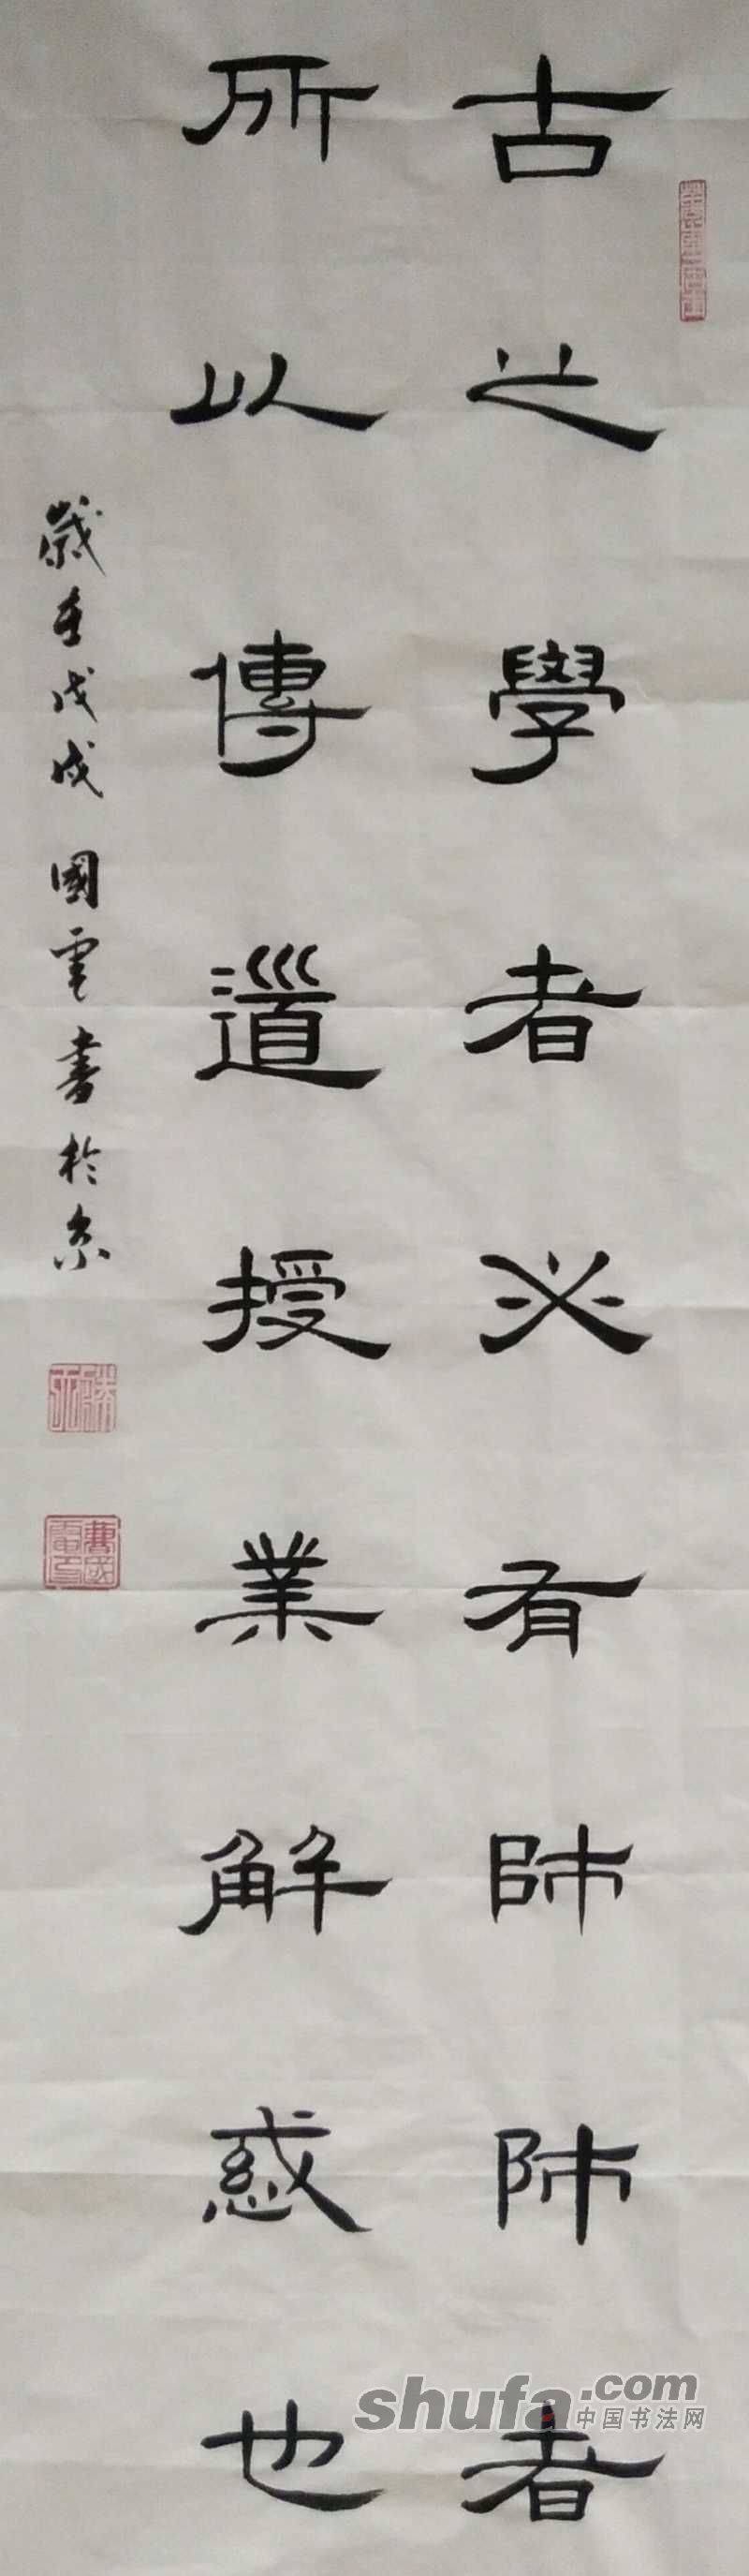 古之學者必有師師者
所以傳道授業解惑也
歲在戊戌 國電書於京
shufa.com
中国书法网